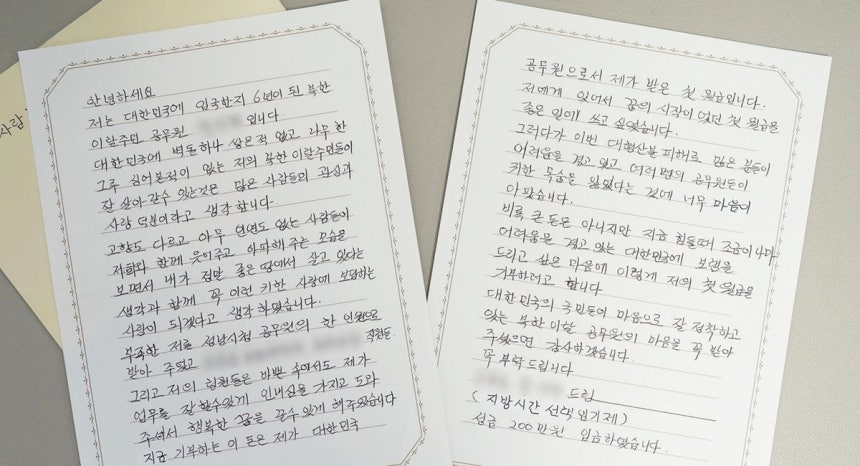 사람
안녕하세요
저는 대한민국에 입국한지 6년이 된 북한
이탈주민 공무원 입니다.
대한민국에 벽돌하나 쌓은적 없고 나무 한
그루 심어본적이 없는 저와 북한 이탈주민들이
잘 살아갈수 있는것은 많은 사람들의 관심과
사랑 덕분이라고 생각 합니다.
고향도 다르고 아무 연연도 없는 사람들이
저희와 함께 웃어주고 아파해 주는 모습을
보면서 내가 정말 좋은 땅에서 살고 있다는
생각과 함께 꼭 이런 귀한 사랑에 보답하는
사람이 되겠다고 생각 하였습니다.
부족한 저를 성남시청 공무원의 한 인원으로
받아 주었고 직원들
그리고 저의 팀원들은 바쁜 속에서도 제가
업무를 잘 할수있게 인내심을 가지고 도와
주셔서 행복한 꿈을 꿀수 있게 해주셨습니다
지금 기부하는 이 돈은 제가 대한민국
공무원으로서 제가 받은 첫 월급입니다.
저에게 있어서 꿈의 시작이 였던 첫 월급을
좋은 일에 쓰고 싶었습니다.
그러다가 이번 대형산불 피해로 많은 분들이
어려움을 겪고 있고 여러명의 공무원들이
귀한 목숨을 잃었다는 것에 너무 마음이
아팠습니다.
비록 큰 돈은 아니지만 지금 힘들때 조금이나마
어려움을 겪고 있는 대한민국에 보탬을
드리고 싶은 마음에 이렇게 저의 첫 월급을
기부하려고 합니다
대한민국의 국민들이 마음으로 잘 정착하고
있는 북한 이탈 공무원의 마음을 꼭 받아
주셨으면 감사하겠습니다.
꼭 부탁드립니다
드림
(지방시간 선택 임기제)
성금 200만원 입금하였습니다.